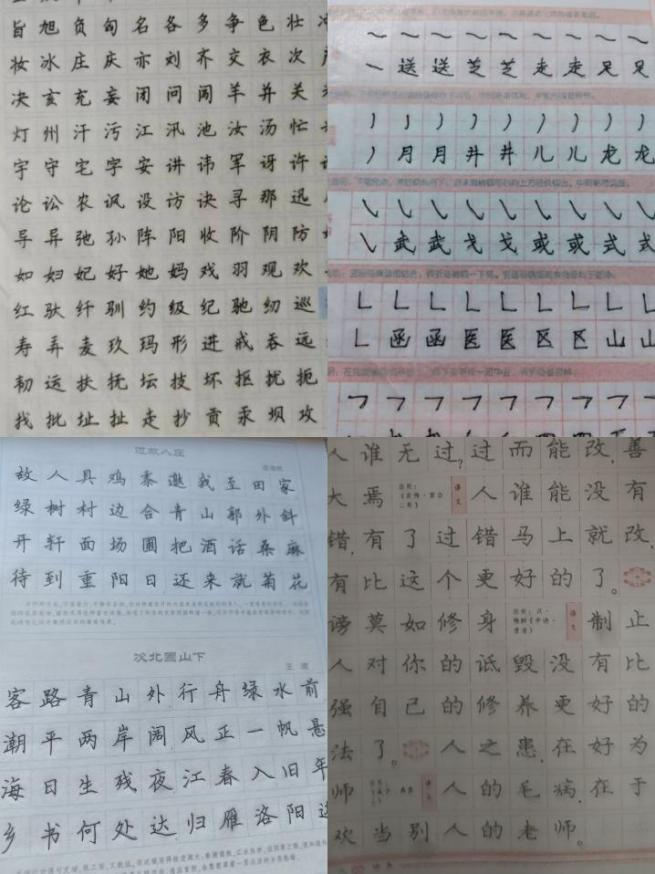 旨旭负匈名各多争色壮
妆冰庄庆亦刘齐交衣次
决亥充妄闭问闯羊并关
灯州汗污江汛池汝汤忙
宇守宅字安讲讳军讶许
论讼农讽设访诀寻那迅
导异弛孙阵阳收阶阴防
如妇妃好她妈戏羽观欢
红驮纤驯约级纪驰纫巡
寿弄麦玖玛形进戒吞远
韧运扶抚坛技坏抠扰扼
找批址扯走抄贡汞坝攻
送送芝芝走走足足
月月井井儿儿龙龙
武武戈戈或或式式
函函医医区区山山
过故人庄
孟浩然
故人具鸡黍邀我至田家
绿树村边合青山郭外斜
开轩面场圃把酒话桑麻
待到重阳日还来就菊花
次北固山下
王湾
客路青山外,行舟绿水前
潮平两岸阔,风正一帆悬
海日生残夜,江春入旧年
乡书何处达,归雁洛阳边
人谁无过?过而能改,善
大焉 译文 人谁能没有
错,有了过错马上就改,
有比这个更好的了。
谤莫如修身 译文 制止
人对你的诋毁没有比
强自己的修养更好的
法了。人之患,在好为
师 译文 人的毛病,在于
欢当别人的老师。